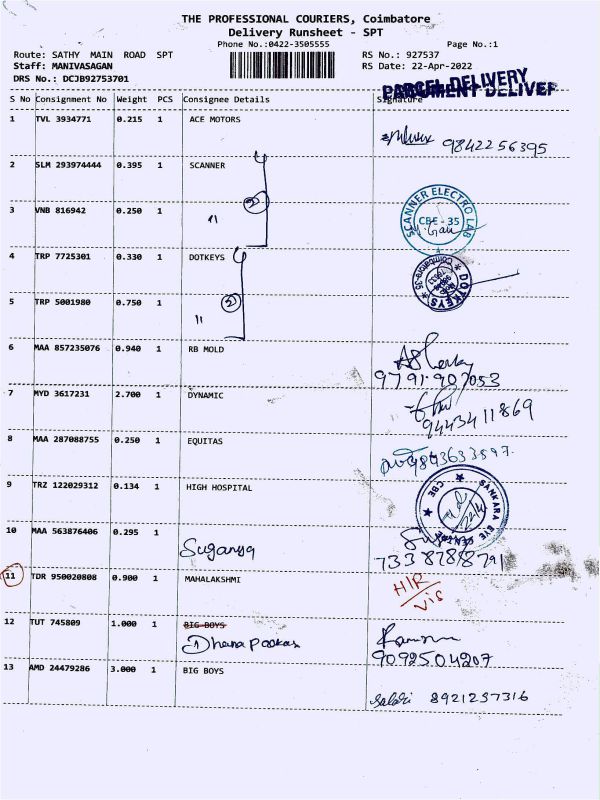 THE PROFESSIONAL COURIERS, Coimbatore
Delivery Runsheet - SPT
Phone No.:0422-3505555 Page No.:1
Route: SATHY MAIN ROAD SPT RS No.: 927537
Staff: MANIVASAGAN RS Date: 22-Apr-2022
DRS No.: DCJB92753701
PARCEL DELIVERY
S No Consignment No Weight PCS Consignee Details Signature
1 TVL 3934771 0.215 1 ACE MOTORS
9842256395
2 SLM 293974444 0.395 1 SCANNER
SCANNER ELECTRO LAB
CBE - 35
3 VNB 816942 0.250 1 "
4 TRP 7725301 0.330 1 DOTKEYS
DOTKEYS
Coimbatore-35
5 TRP 5001980 0.750 1 "
6 MAA 857235076 0.940 1 RB MOLD
9791907053
7 MYD 3617231 2.700 1 DYNAMIC
9443411869
8 MAA 287088755 0.250 1 EQUITAS
9843633597
9 TRZ 122029312 0.134 1 HIGH HOSPITAL
SANKARA EYE
CBE
10 MAA 563876406 0.295 1
Suganya
7338787
11 TDR 950020808 0.900 1 MAHALAKSHMI
12 TUT 745809 1.000 1 BIG BOYS
9092504207
13 AMD 24479286 3.000 1 BIG BOYS
8921237316